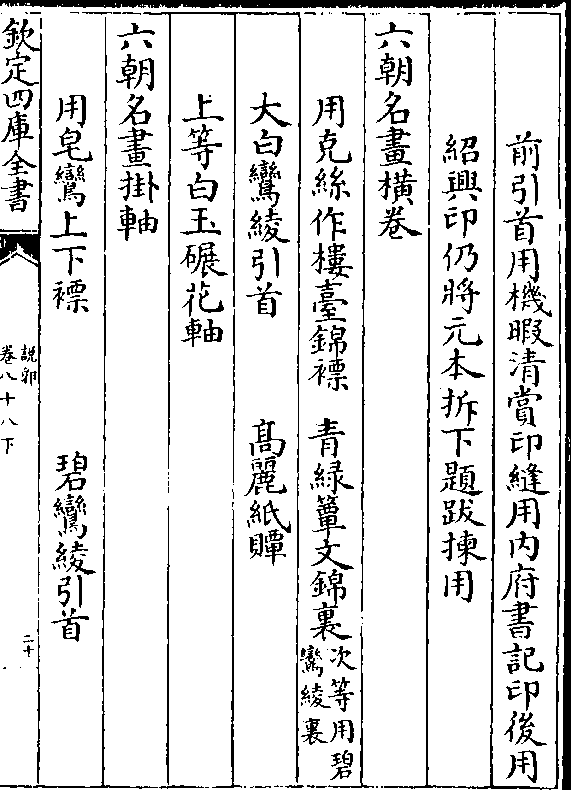 前引首用機暇清賞印縫用内府書記印後用
紹興印仍將元本拆下題跋揀用
六朝名畫橫卷
用克絲作樓臺錦褾　青緑簟文錦裏次等用碧鸞綾裏
大白鸞綾引首　高麗紙贉
上等白玉碾花軸
六朝名畫掛軸
用皂鸞上下褾　碧鸞綾引首
欽定四庫全書
說郛
卷八十八下
二十